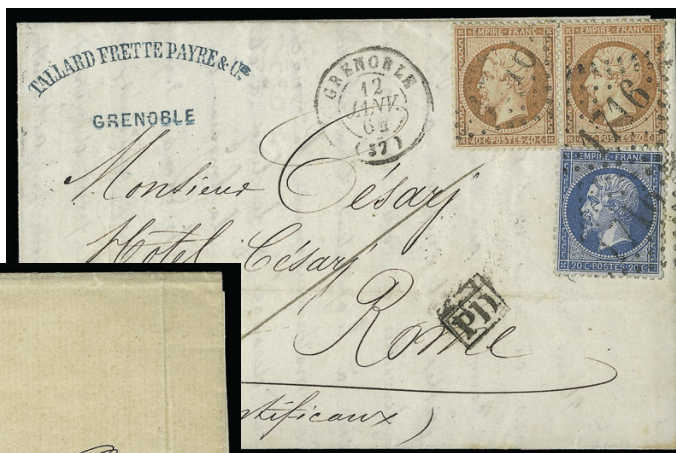 TALLARD FRETTE PAYRE & Cie
GRENOBLE
GRENOBLE
12
JANV.
(37)
EMPIRE FRANC
40 C. POSTES 40 C.
EMPIRE FRANC
40 C. POSTES 40 C.
1716
EMPIRE FRANC
20 C. POSTES 20 C.
Monsieur César
Hôtel César
PD
Rome
tificaux)